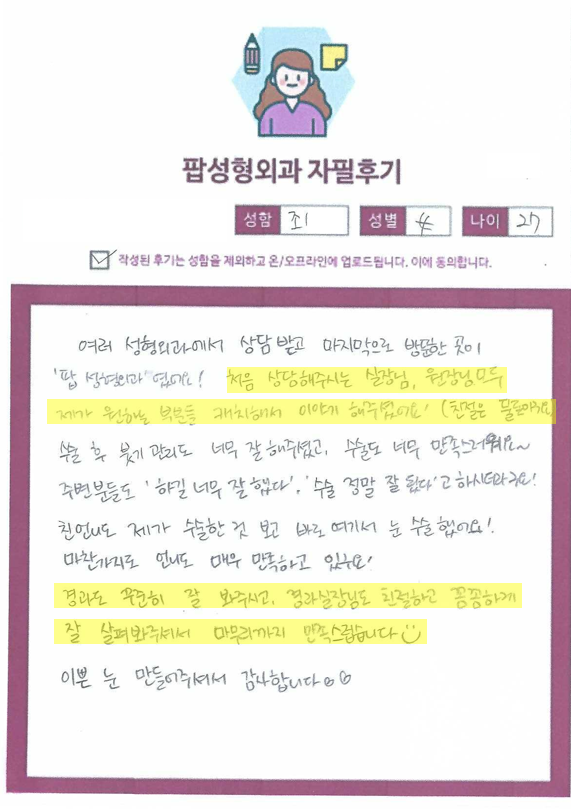 팝성형외과 자필후기
성함 조 성별 나이 27
작성된 후기는 성함을 제외하고 온/오프라인에 업로드됩니다. 이에 동의합니다.
여러 성형외과에서 상담 받고 마지막으로 방문한 곳이
'팝 성형외과' 였어요! 처음 상담해주시는 실장님, 원장님 모두
제가 원하는 부분을 캐치해서 이야기 해주셨어요! (친절은 물론이구요)
수술 후 붓기 관리도 너무 잘 해주셨고, 수술도 너무 만족스러워요~
주변분들도 '하길 너무 잘 했다', '수술 정말 잘 됐다'고 하시더라구요!
친언니도 제가 수술한 것 보고 바로 여기서 눈 수술 했어요!
마찬가지로 언니도 매우 만족하고 있구요!
경과도 꾸준히 잘 봐주시고, 경과실장님도 친절하고 꼼꼼하게
잘 살펴봐주셔서 마무리까지 만족스럽습니다
이쁜 눈 만들어주셔서 감사합니다